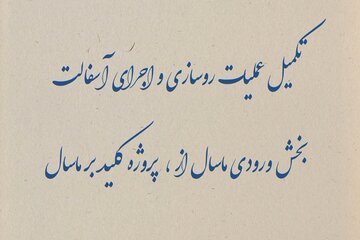 تکمیل عملیات روسازی و اجرای آسفالت
بخش ورودی ماسال از ، پروژه کلید بر ماسال